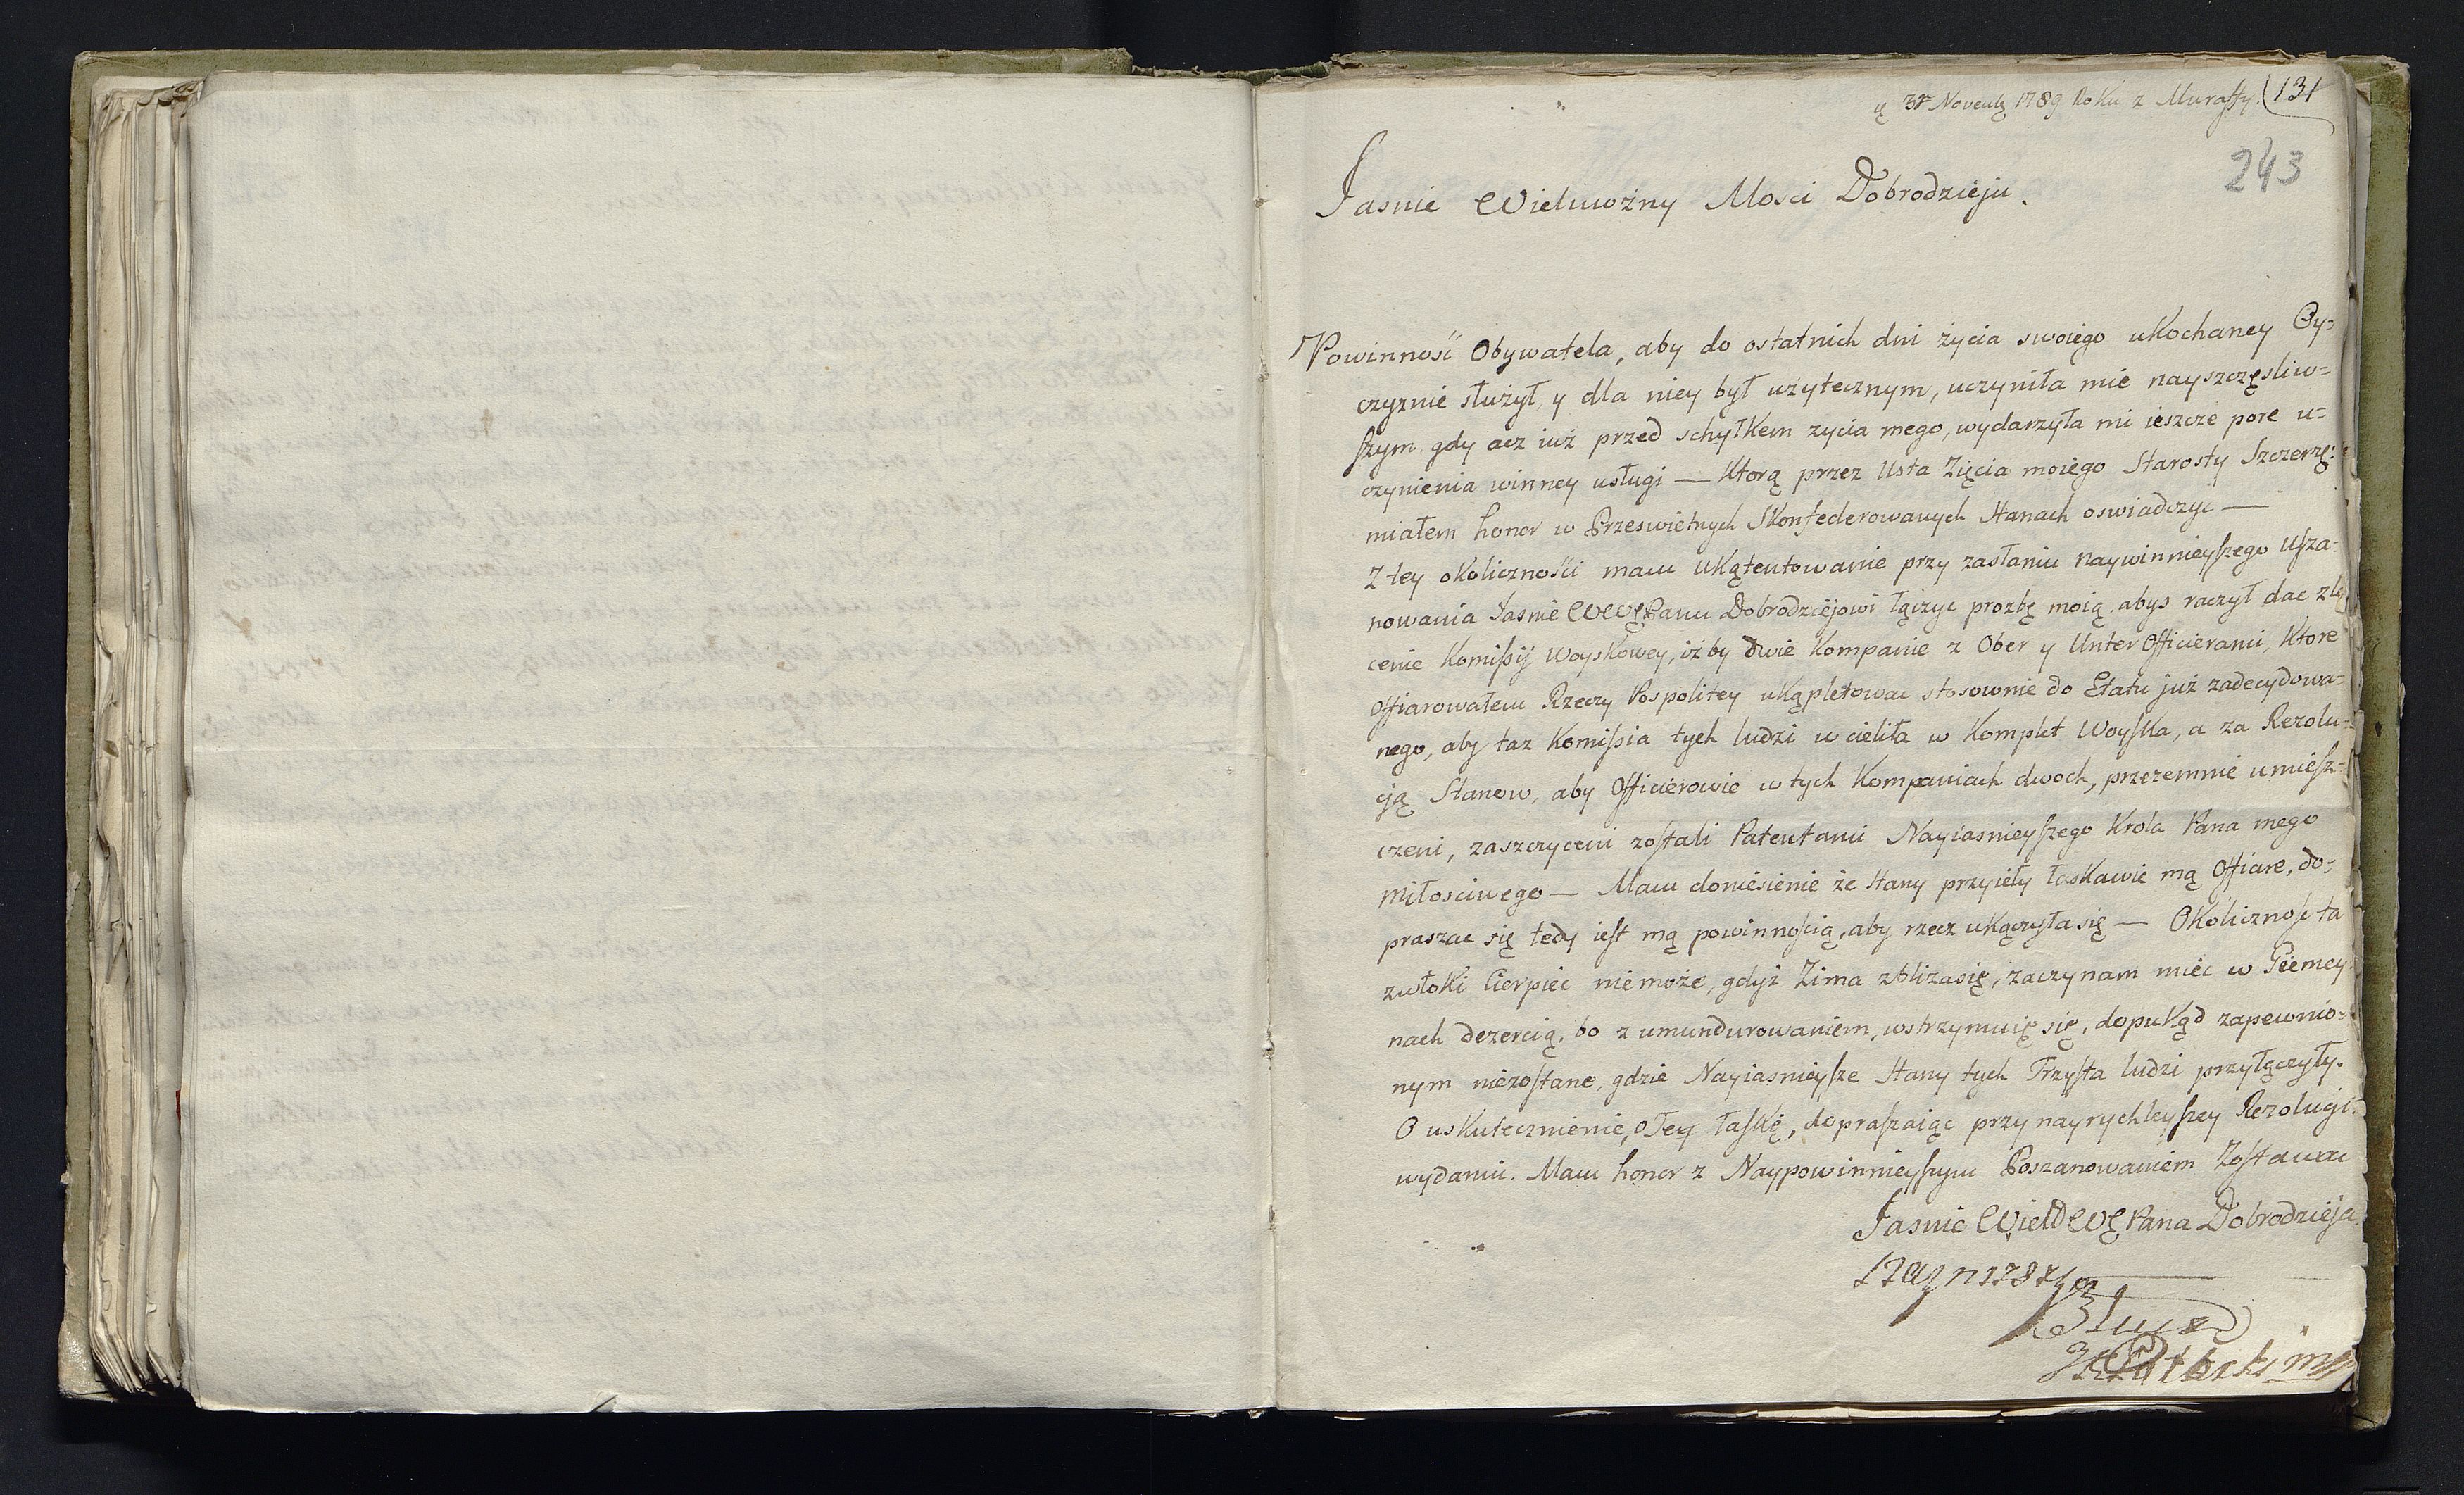 3 Novembr 1789 Roku z Murafſy. 131
243
Jasnie Wielmożny Mosci Dobrodzieju.
Powinnosć Obywatela, aby do ostatnich dni życia swoiego ukochaney Oy=
czyznie służył, y dla niey był użytecznym, uczyniła mie nayszczęsliw=
ſzym gdy acz iuż przed schyłkem zycia mego, wydarzyła mi ieszcze pore u=
czynienia winney usługi — Ktorą przez Usta Zięcia moiego Starosty Szczerze:
miałem honor w Przeswietnych Skonfederowanych Stanach oswiadczyc —
Z tey okolicznosći mam ukątentowanie przy zasłaniu naywinnieyſzego Uſza=
nowania Jasnie WWę Panu Dobrodziejowi łączyc prozbę moią, abys raczył dac zle
cenie Komiſsij Woyskowey, iżby dwie Kompanie z Ober y Unter Officierami, Ktore
Offiarowałem Rzeczy Pospolitey ukąpletowac stosownie do Etatu już zadecydowa=
nego, aby taz Komiſsia tych ludzi wcieliła w Komplet Woyſka, a za Rezolu=
cją Stanow, aby Officierowie w tych Kompaniach dwoch, przezemnie umieſz=
czeni, zaszczyceni zoſtali Patentami Nayiasnieyſzego Krola Pana mego
Miłosciwego — Mam doniesienie że Stany przyieły łaskawie mą Offiare, do=
praszac się tedy ieſt mą powinnoſcią, aby rzecz ukączyła się — Okolicznoſc ta
zwłoki Cierpiec niemoże, gdyż Zima zbliza się, zaczynam miec w Giemey=
nach dezercią, bo z umundurowaniem, wstrzymuię się, dopukąd zapewnio=
nym niezoſtane, gdzie Nayiasnieyſze Stany tych Trzyſta ludzi przyłączyły.
O uskutecznienie, o Tey łaſkę, dopraſzaiąc przy nayrychleyſzey Rezolucji
wydaniu. Mam honor z Naypowinnieyſzym Poszanowaniem Zoſtawac
Jasnie Wiel WWę Pana Dobrodzieja
Sługą